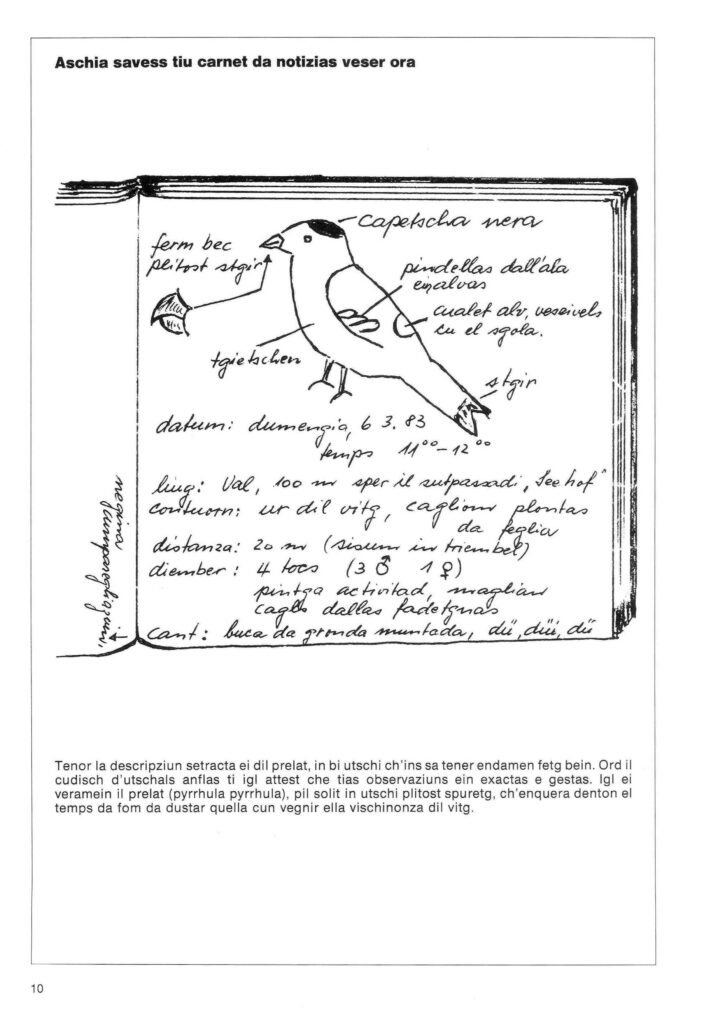 Aschia savess tiu carnet da notizias veser ora
capetscha nera
ferm bec
plitost stgir
pindellas dall'ala
ein alvas
cualet alv, veseivels
cu el sgola.
tgietschen
stgir
datum: dumengia, 6 3. 83
temps 11⁰⁰ – 12⁰⁰
liug: Val, 100 m sper il sutpassadi „Seehof"
contuorn: ur dil vitg, caglioms plontas
da feglia
distanza: 20 m (sisum in triembel)
diember: 4 tocs (3 ♂ 1 ♀)
pintga activitad, maglian
cagls dallas fadetgnas
cant: buca da gronda muntada, dü, düi, dü
Tenor la descripziun setracta ei dil prelat, in bi utschi ch'ins sa tener endamen fetg bein. Ord il
cudisch d'utschals anflas ti igl attest che tias observaziuns ein exactas e gestas. Igl ei
veramein il prelat (pyrrhula pyrrhula), pil solit in utschi plitost spuretg, ch'enquera denton el
temps da fom da dustar quella cun vegnir ella vischinonza dil vitg.
10